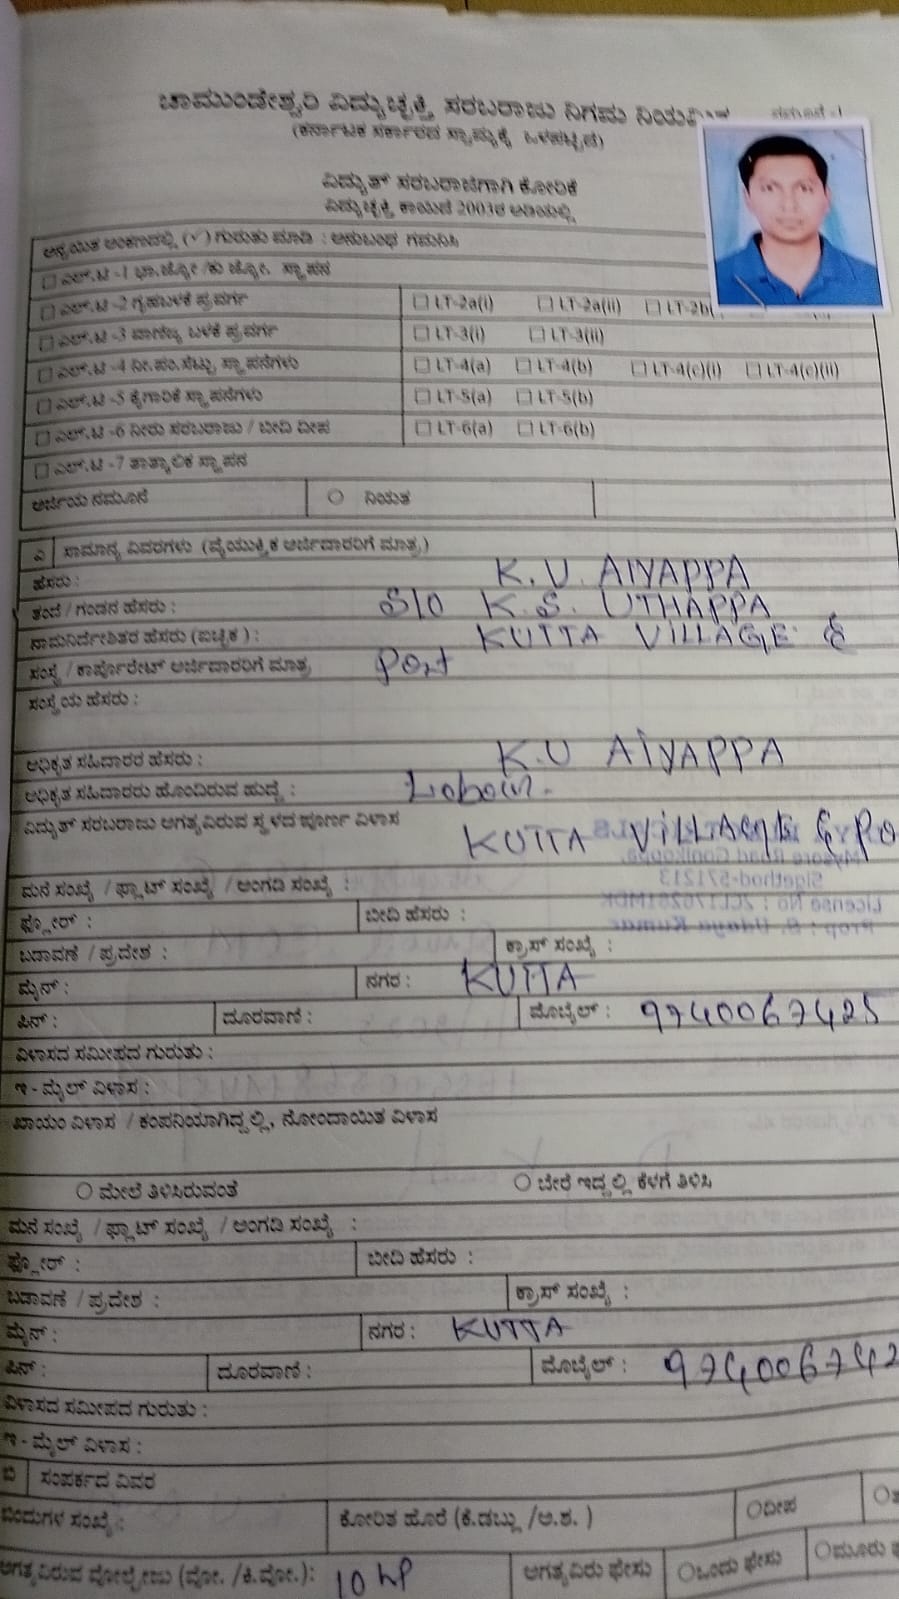 ಚಾಮುಂಡೇಶ್ವರಿ ವಿದ್ಯುಚ್ಛಕ್ತಿ ಸರಬರಾಜು ನಿಗಮ ನಿಯಮಿತ ನಮೂನೆ -1
(ಕರ್ನಾಟಕ ಸರ್ಕಾರದ ಸ್ವಾಮ್ಯಕ್ಕೆ ಒಳಪಟ್ಟಿದೆ)
ವಿದ್ಯುತ್ ಸರಬರಾಜಿಗಾಗಿ ಕೋರಿಕೆ
ವಿದ್ಯುಚ್ಛಕ್ತಿ ಕಾಯಿದೆ 2003ರ ಅಡಿಯಲ್ಲಿ
ಅನ್ವಯಿತ ಅಂಕಣದಲ್ಲಿ (✓) ಗುರುತು ಮಾಡಿ : ಅನುಬಂಧ ಗಮನಿಸಿ
ಎಲ್.ಟಿ -1 ಭಾ.ಜ್ಯೋ /ಕು ಜ್ಯೋ. ಸ್ಥಾಪನ
ಎಲ್.ಟಿ -2 ಗೃಹಬಳಕೆ ಪ್ರವರ್ಗ LT-2a(i) LT-2a(ii) LT-2b(
ಎಲ್.ಟಿ -3 ವಾಣಿಜ್ಯ ಬಳಕೆ ಪ್ರವರ್ಗ LT-3(i) LT-3(ii)
ಎಲ್.ಟಿ -4 ನೀ.ಪಂ.ಸೆಟ್ಟು ಸ್ಥಾಪನೆಗಳು LT-4(a) LT-4(b) LT-4(c)(i) LT-4(c)(ii)
ಎಲ್.ಟಿ -5 ಕೈಗಾರಿಕೆ ಸ್ಥಾಪನೆಗಳು LT-5(a) LT-5(b)
ಎಲ್.ಟಿ -6 ನೀರು ಸರಬರಾಜು / ಬೀದಿ ದೀಪ LT-6(a) LT-6(b)
ಎಲ್.ಟಿ -7 ತಾತ್ಕಾಲಿಕ ಸ್ಥಾಪನ
ಅರ್ಜಿಯ ನಮೂನೆ ನಿಯತ
ಎ ಸಾಮಾನ್ಯ ವಿವರಗಳು (ವೈಯುಕ್ತಿಕ ಅರ್ಜಿದಾರರಿಗೆ ಮಾತ್ರ)
ಹೆಸರು : K. U. AIYAPPA
ತಂದೆ / ಗಂಡನ ಹೆಸರು : S/O K. S. UTHAPPA
ನಾಮನಿರ್ದೇಶಿತರ ಹೆಸರು (ಐಚ್ಛಿಕ ) : KUTTA VILLAGE &
ಸಂಸ್ಥೆ / ಕಾರ್ಪೊರೇಟ್ ಅರ್ಜಿದಾರರಿಗೆ ಮಾತ್ರ Post
ಸಂಸ್ಥೆಯ ಹೆಸರು :
ಅಧಿಕೃತ ಸಹಿದಾರರ ಹೆಸರು : K.U AIYAPPA
ಅಧಿಕೃತ ಸಹಿದಾರರು ಹೊಂದಿರುವ ಹುದ್ದೆ :
ವಿದ್ಯುತ್ ಸರಬರಾಜು ಅಗತ್ಯವಿರುವ ಸ್ಥಳದ ಪೂರ್ಣ ವಿಳಾಸ
KUTTA VILLAGE & PO
ಮನೆ ಸಂಖ್ಯೆ / ಫ್ಲಾಟ್ ಸಂಖ್ಯೆ / ಅಂಗಡಿ ಸಂಖ್ಯೆ :
ಫ್ಲೋರ್ : ಬೀದಿ ಹೆಸರು :
ಬಡಾವಣೆ / ಪ್ರದೇಶ : ಕ್ರಾಸ್ ಸಂಖ್ಯೆ :
ಮೈನ್ : ನಗರ : KUTTA
ಪಿನ್ : ದೂರವಾಣಿ : ಮೊಬೈಲ್ : 9740067425
ವಿಳಾಸದ ಸಮೀಪದ ಗುರುತು :
ಇ - ಮೈಲ್ ವಿಳಾಸ :
ಖಾಯಂ ವಿಳಾಸ / ಕಂಪನಿಯಾಗಿದ್ದಲ್ಲಿ, ನೋಂದಾಯಿತ ವಿಳಾಸ
ಮೇಲೆ ತಿಳಿಸಿರುವಂತೆ ಬೇರೆ ಇದ್ದಲ್ಲಿ ಕೆಳಗೆ ತಿಳಿಸಿ
ಮನೆ ಸಂಖ್ಯೆ / ಫ್ಲಾಟ್ ಸಂಖ್ಯೆ / ಅಂಗಡಿ ಸಂಖ್ಯೆ :
ಫ್ಲೋರ್ : ಬೀದಿ ಹೆಸರು :
ಬಡಾವಣೆ / ಪ್ರದೇಶ : ಕ್ರಾಸ್ ಸಂಖ್ಯೆ :
ಮೈನ್ : ನಗರ : KUTTA
ಪಿನ್ : ದೂರವಾಣಿ : ಮೊಬೈಲ್ : 974006742
ವಿಳಾಸದ ಸಮೀಪದ ಗುರುತು :
ಇ - ಮೈಲ್ ವಿಳಾಸ :
ಬಿ ಸಂಪರ್ಕದ ವಿವರ
ಬಿಂದುಗಳ ಸಂಖ್ಯೆ : ಕೋರಿತ ಹೊರೆ (ಕೆ.ಡಬ್ಲ್ಯು /ಅ.ಶ. ) ದೀಪ
ಅಗತ್ಯವಿರುವ ವೋಲ್ಟೇಜು (ವೋ. /ಕಿ.ವೋ.): 10 HP ಅಗತ್ಯವಿರು ಫೇಸು ಒಂದು ಫೇಸು ಮೂರು